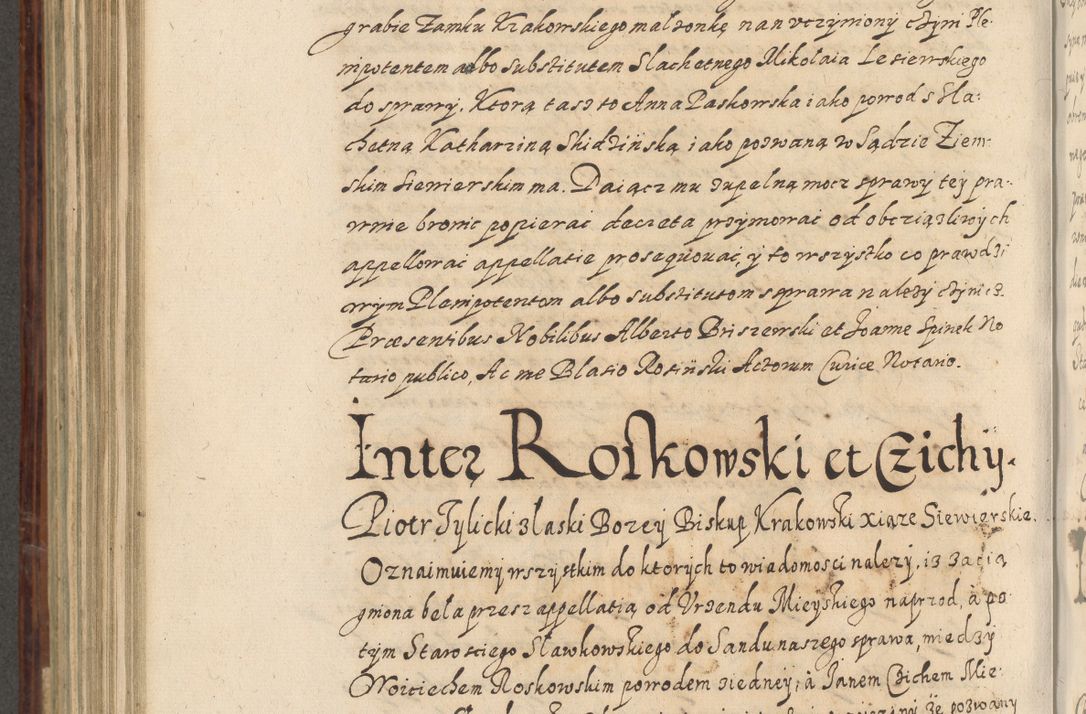 grabie Zamku Krakowskiego małżonkę nan uczyniony czyni Ple
nipotentem albo substitutem Slachetnego Mikołaia Lesiewskiego
do sprawy, Ktorą tasz to Anna Paskowska iako powod s Sla-
chetną Katharziną Skidzińską iako pozwaną w Sądzie Ziem-
skim Siewierskim ma. Daiącz mu zupełną mocz sprawy tey pra-
wnie bronic popierac decreta przymowac od obcziązliwych
appellowac appellatie prosequowac, y to wszystko co prawdzi
wym Plenipotentom albo substitutom s prawa należy czynicz.
Præsentibus Nobilibus Alberto Briszewski et Joanne Spinek No
tario publico, Ac me Blasio Rosiński Actorum Curiæ Notario.
Inter Roskowski et Czichy.
Piotr Tylicki z łaski Bozey Biskup Krakowski xiąze Siewierskie.
Oznaimuiemy wszystkim do ktorych to wiadomosci nalezy, iz zacią
gniona beła przesz appellatią od Vrzendu Mieyskiego naprzod, à po
tym Starosciego Sławkowskiego do Sandu naszego sprawa, miedzy
Woiciechem Roskowskim powodem ziedney, à Janem Czichem Mie-
ze pozwany